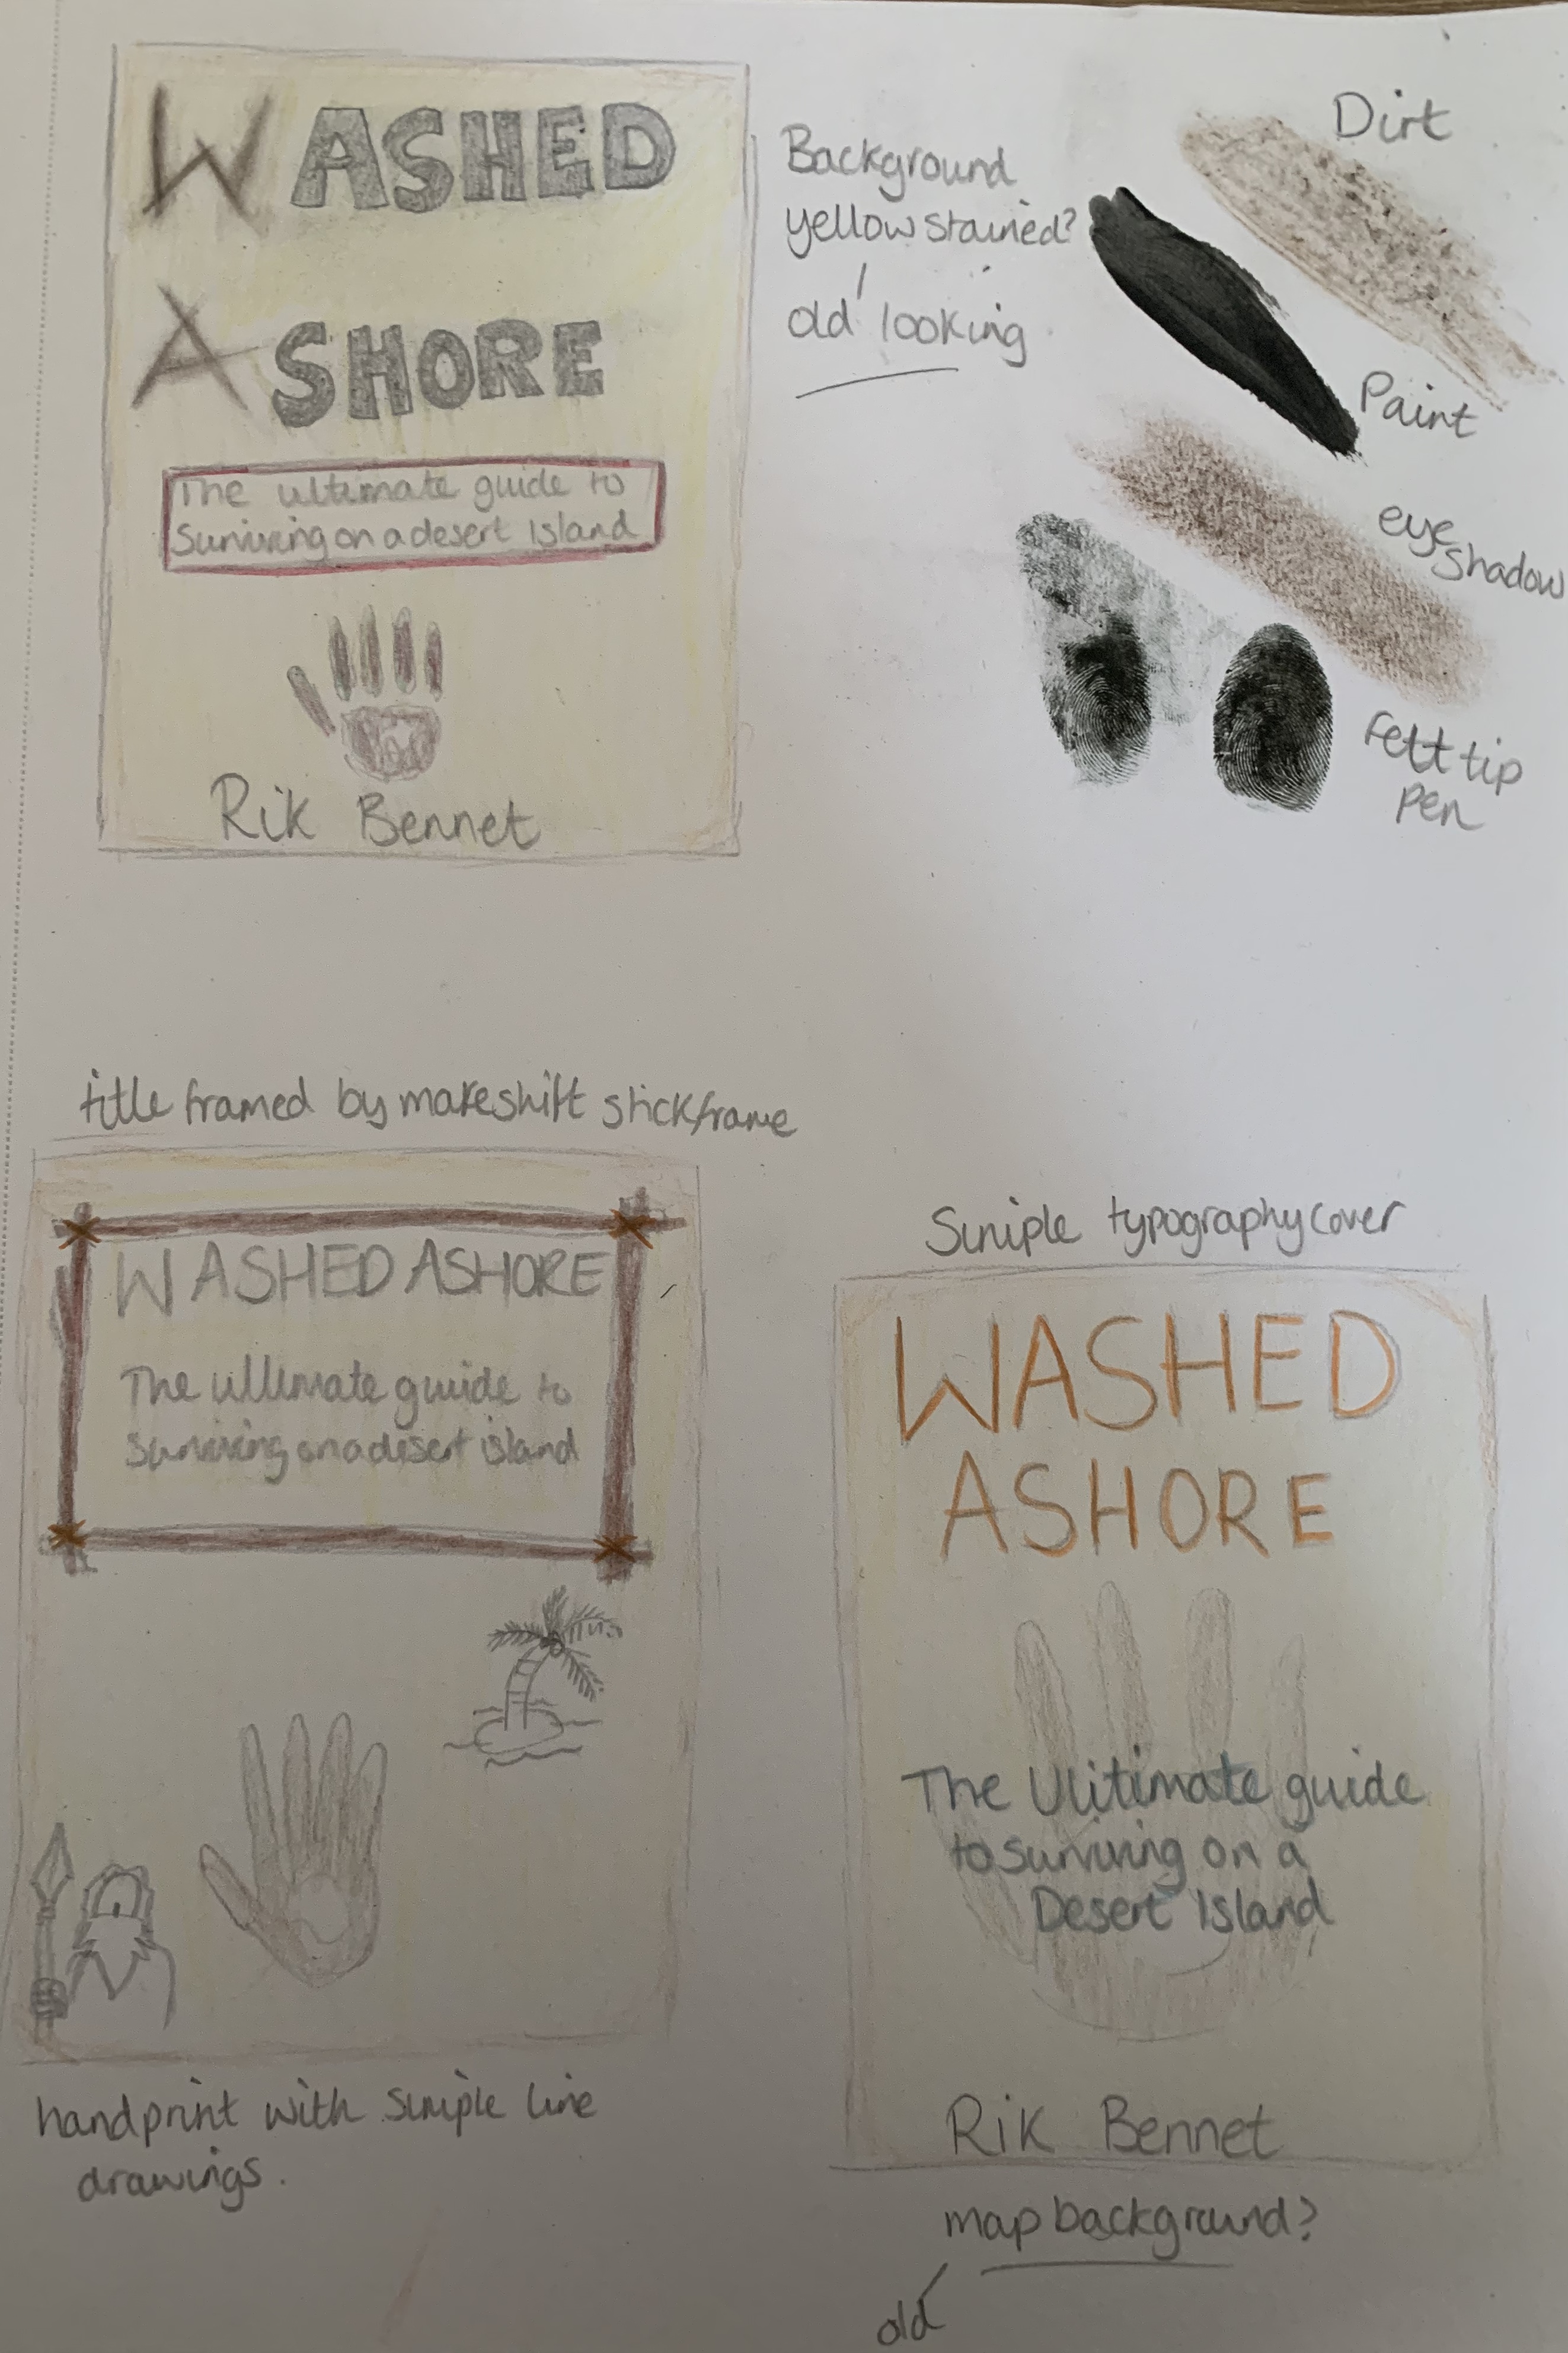 WASHED
ASHORE
The ultimate guide to
Surviving on a desert Island
Rik Bennet
Background
yellow stained?
old looking
Dirt
Paint
eye
shadow
Felt tip
pen
title framed by makeshift stick frame
WASHED ASHORE
The ultimate guide to
Surviving on a desert island
handprint with simple line
drawings.
Simple typography cover
WASHED
ASHORE
The Ulitimate guide
to surviving on a
Desert Island
Rik Bennet
map background?
old